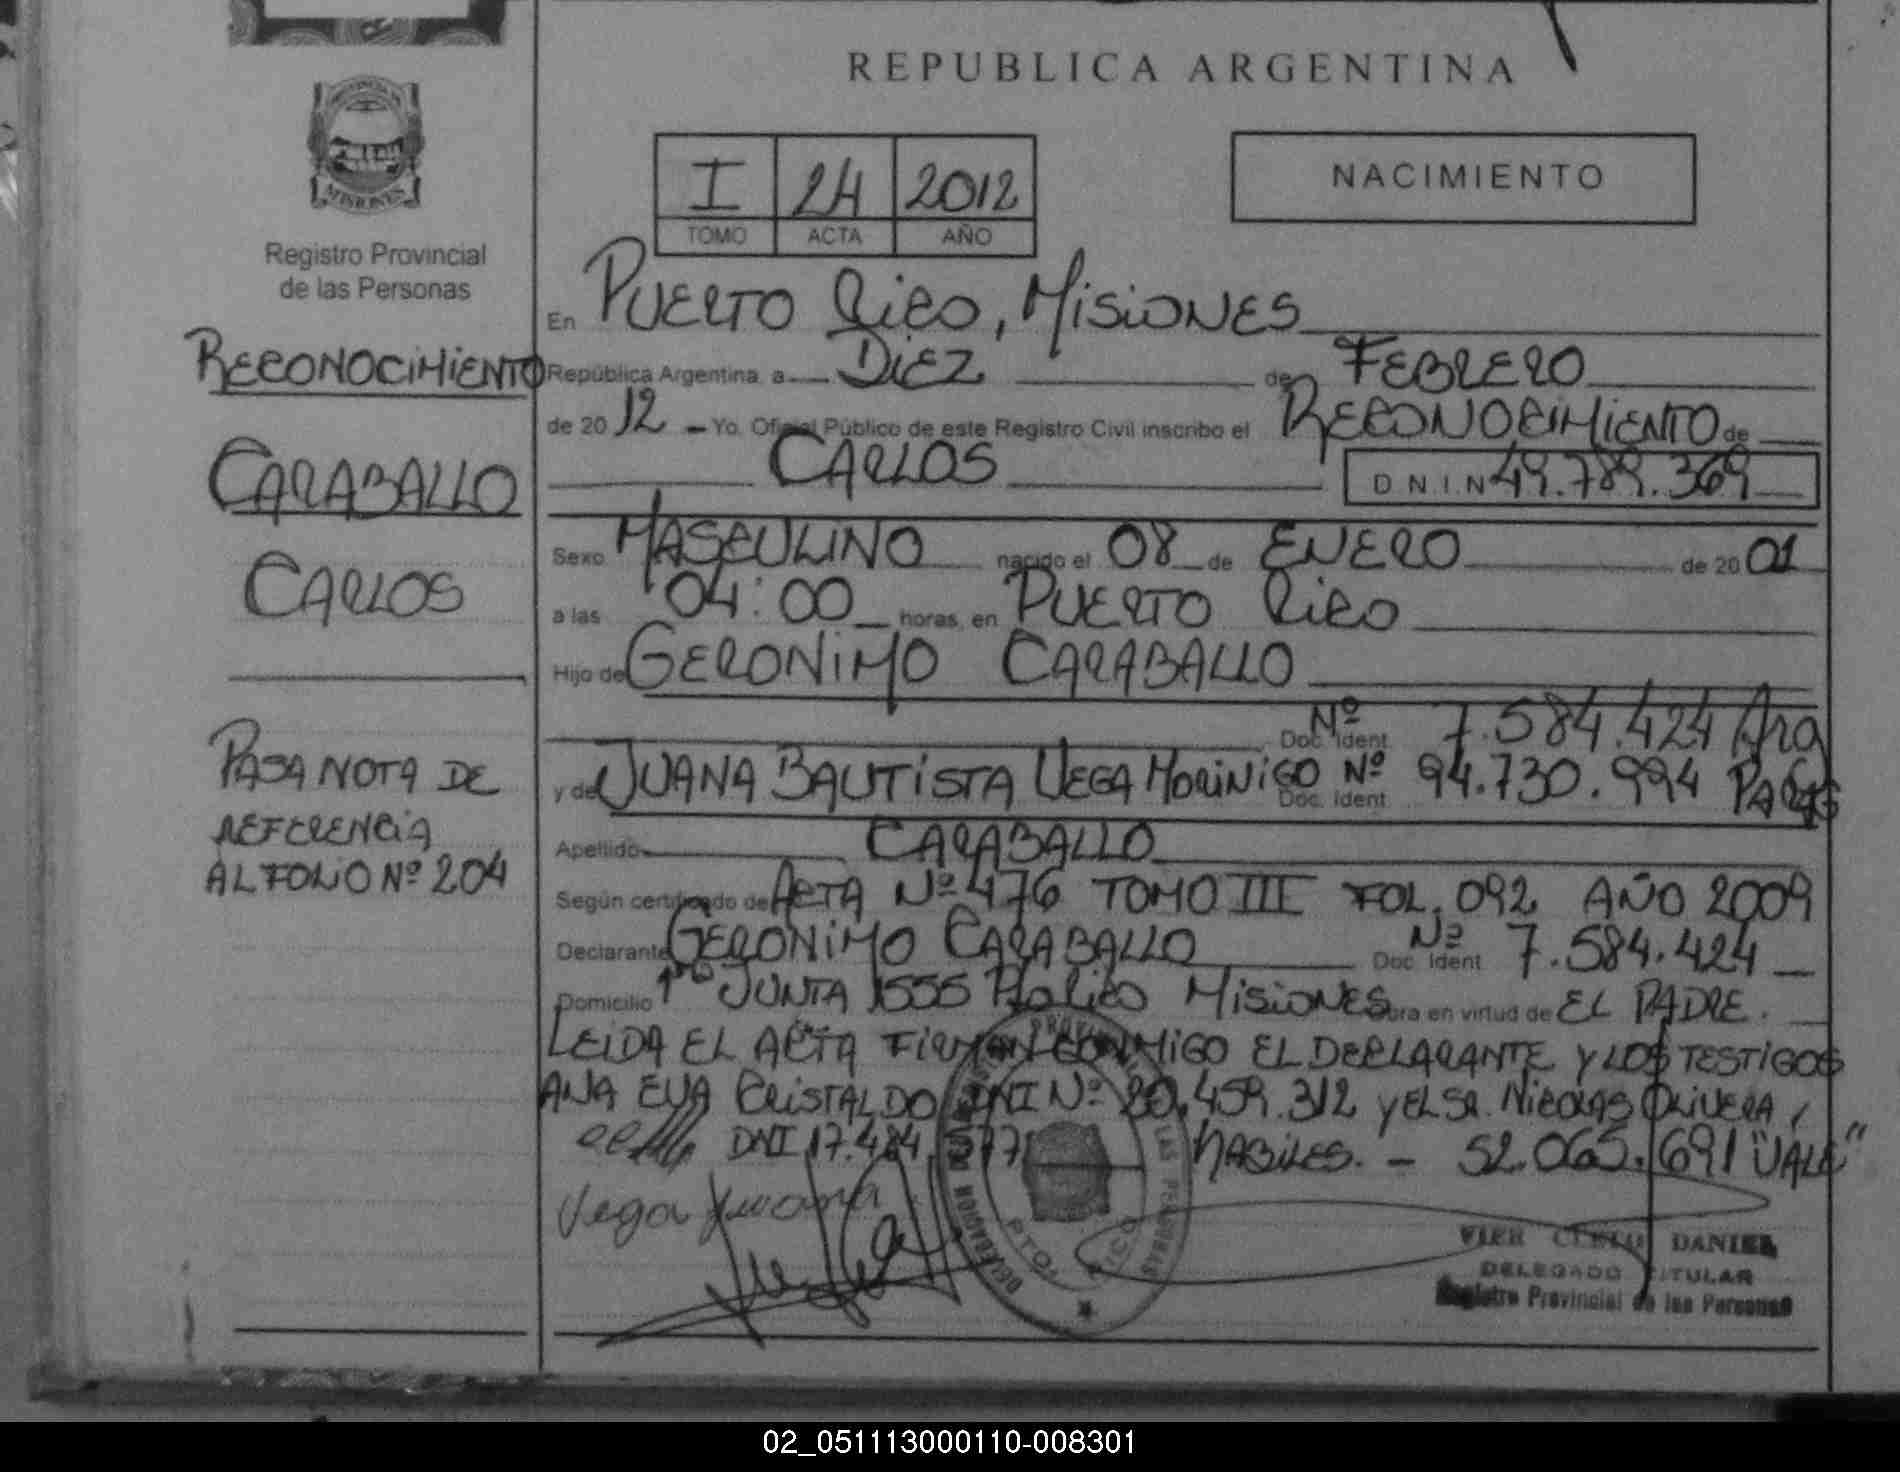 REPUBLICA ARGENTINA
NACIMIENTO
I 24 2012
TOMO ACTA AÑO
MISIONES
Registro Provincial
de las Personas
RECONOCIMIENTO
CARABALLO
CARLOS
PASA NOTA DE
REFERENCIA
AL FOLIO Nº 204
En PUERTO RICO, MISIONES
República Argentina, a DIEZ de FEBRERO
de 2012 - Yo, Oficial Público de este Registro Civil inscribo el RECONOCIMIENTO de
CARLOS D N I N 49.789.369
Sexo MASCULINO nacido el 08 de ENERO de 2001
a las 04:00 horas, en PUERTO RICO
Hijo de GERONIMO CARABALLO
Doc. Ident. Nº 7.584.424 Arg
y de JUANA BAUTISTA VEGA MORINIGO Doc. Ident. Nº 94.730.994
Apellido CARABALLO
Según certificado de ACTA Nº 476 TOMO III FOL. 092 AÑO 2009
Declarante GERONIMO CARABALLO Doc. Ident. Nº 7.584.424
Domicilio JUNTA 1555 MISIONES obra en virtud de EL PADRE.
LEIDA EL ACTA FIRMAN CONMIGO EL DECLARANTE Y LOS TESTIGOS
ANA EVA CRISTALDO DNI Nº 20.459.312 Y EL SR. NICOLAS OLIVERA,
DNI 17.484. 77 HABILES. - 52.065.691 "VALE"
Vega Juana
DELEGACION
PTO. RICO
LAS PERSONAS
DANIEL
DELEGADO TITULAR
Registro Provincial de las Personas
02_051113000110-008301